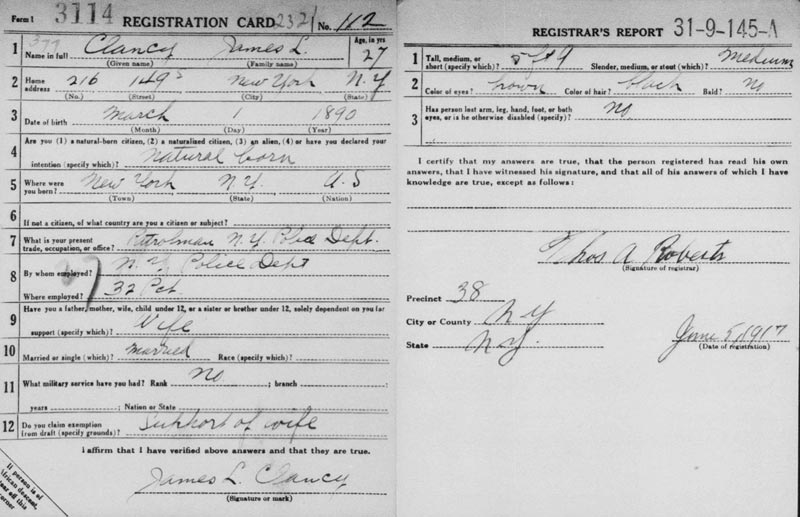 Form 1 3114 REGISTRATION CARD 2321 No. 112
1 377 Name in full Clancy James L. Age, in yrs 27
(Given name) (Family name)
2 Home address 216 149 New York N.Y
(No.) (Street) (City) (State)
3 Date of birth March 1 1890
(Month) (Day) (Year)
4 Are you (1) a natural-born citizen, (2) a naturalized citizen, (3) an alien, (4) or have you declared your
intention (specify which)? Natural born
5 Where were you born? New York N.Y. U.S
(Town) (State) (Nation)
6 If not a citizen, of what country are you a citizen or subject?
7 What is your present trade, occupation, or office? Patrolman N.Y. Police Dept.
8 By whom employed? N.Y. Police Dept
Where employed? 32 Pct
9 Have you a father, mother, wife, child under 12, or a sister or brother under 12, solely dependent on you for
support (specify which)? Wife
10 Married or single (which)? Married Race (specify which)?
11 What military service have you had? Rank No ; branch ;
years ; Nation or State
12 Do you claim exemption from draft (specify grounds)? Support of wife
I affirm that I have verified above answers and that they are true.
James L. Clancy
(Signature or mark)
If person is of
African descent,
tear off this
corner
REGISTRAR'S REPORT 31-9-145-A
1 Tall, medium, or short (specify which)? 5 ft 9 Slender, medium, or stout (which)? Medium
2 Color of eyes? brown Color of hair? black Bald? No
3 Has person lost arm, leg, hand, foot, or both
eyes, or is he otherwise disabled (specify)? No
I certify that my answers are true, that the person registered has read his own
answers, that I have witnessed his signature, and that all of his answers of which I have
knowledge are true, except as follows:
Thos A Roberts
(Signature of registrar)
Precinct 38
City or County N Y
State N Y. June 5, 1917
(Date of registration)